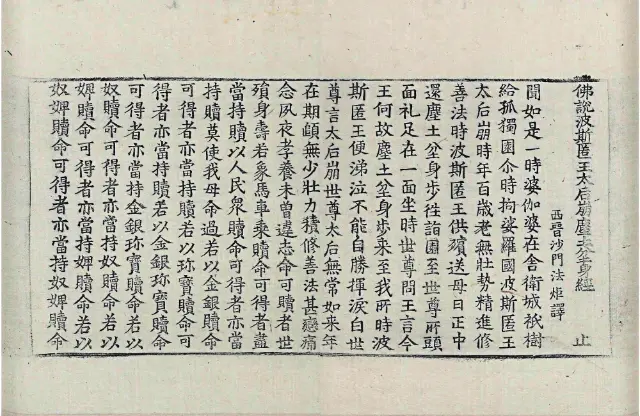 佛說波斯匿王太后崩塵土坌身經 止
西晉沙門法炬譯
聞如是一時婆伽婆在舍衛城祇樹
給孤獨園尒時拘娑羅國波斯匿王
太后崩時年百歳老無壯勢精進修
善法時波斯匿王供殯送母日正中
還塵土坌身步徃詣園至世尊所頭
面礼足在一面坐時世尊問王言今
王何故塵土坌身步來至我所時波
斯匿王便涕泣不能自勝揮淚白世
尊言太后崩世尊太后無常如来年
在期頥無少壮力積修善法甚戀痛
念夙夜孝養未曾違志命可贖者世
殞身壽若象馬車乘贖命可得者盡
當持贖以人民衆贖命可得者亦當
持贖莫使我母命過若以金銀贖命
可得者亦當持贖若以珎寶贖命可
得者亦當持贖若以金銀珎寶贖命
可得者亦當持金銀珎寶贖命若以
奴贖命可得者亦當持奴贖命若以
婢贖命可得者亦當持婢贖命若以
奴婢贖命可得者亦當持奴婢贖命